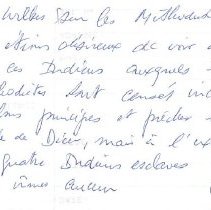 Wilkes sur les Méthodis
étions désireux de voir
ces Indiens auxquels
hodistes sont censés in
principes et prêcher
de Dieu, mais à l'ex
quatre Indiens esclaves
vîmes aucun